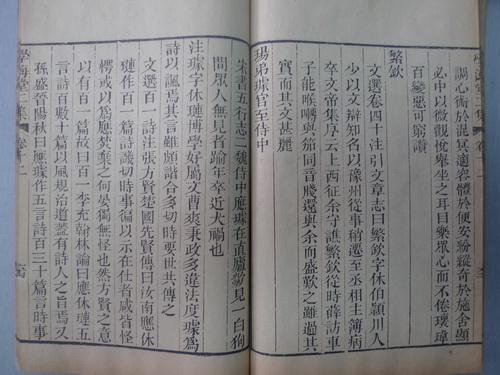 調心術於混冥適容體於便安紛縱奇於施舍顯
必中以微觀悅舉坐之耳目樂眾心而不倦瓌瑋
百變惡可窮讚
繁欽
文選卷四十注引文章志曰繁欽字休伯潁川人
少以文辯知名以豫州從事稍遷至丞相主簿病
卒文帝集序云上西征余守譙繁欽從時薛訪車
子能喉囀與笳同音牋還與余而盛歎之雖過其
實而其文甚麗
瑒弟璩官至侍中
宋書五行志二魏侍中應璩在直廬欻見一白狗
問眾人無見者踰年卒近犬禍也
注璩字休璉博學好屬文曹爽秉政多違法度璩為
詩以諷焉其言雖頗諧合多切時要世共傳之
文選百一詩注張方賢楚國先賢傳曰汝南應休
璉作百一篇詩譏切時事徧以示在仕者咸皆怪
愕或以為應焚棄之何晏獨無怪也然方賢之意
以有百一篇故曰百一李充翰林論曰應休璉五
言詩百數十篇以風規治道蓋有詩人之旨焉又
孫盛晉陽秋曰應璩作五言詩百三十篇言時事
學海堂二集 卷十二